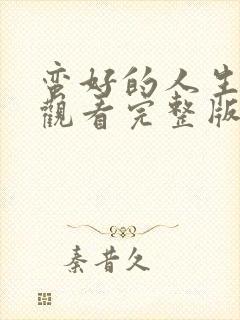 蛮好的人生
觀看完整版
秦昔久